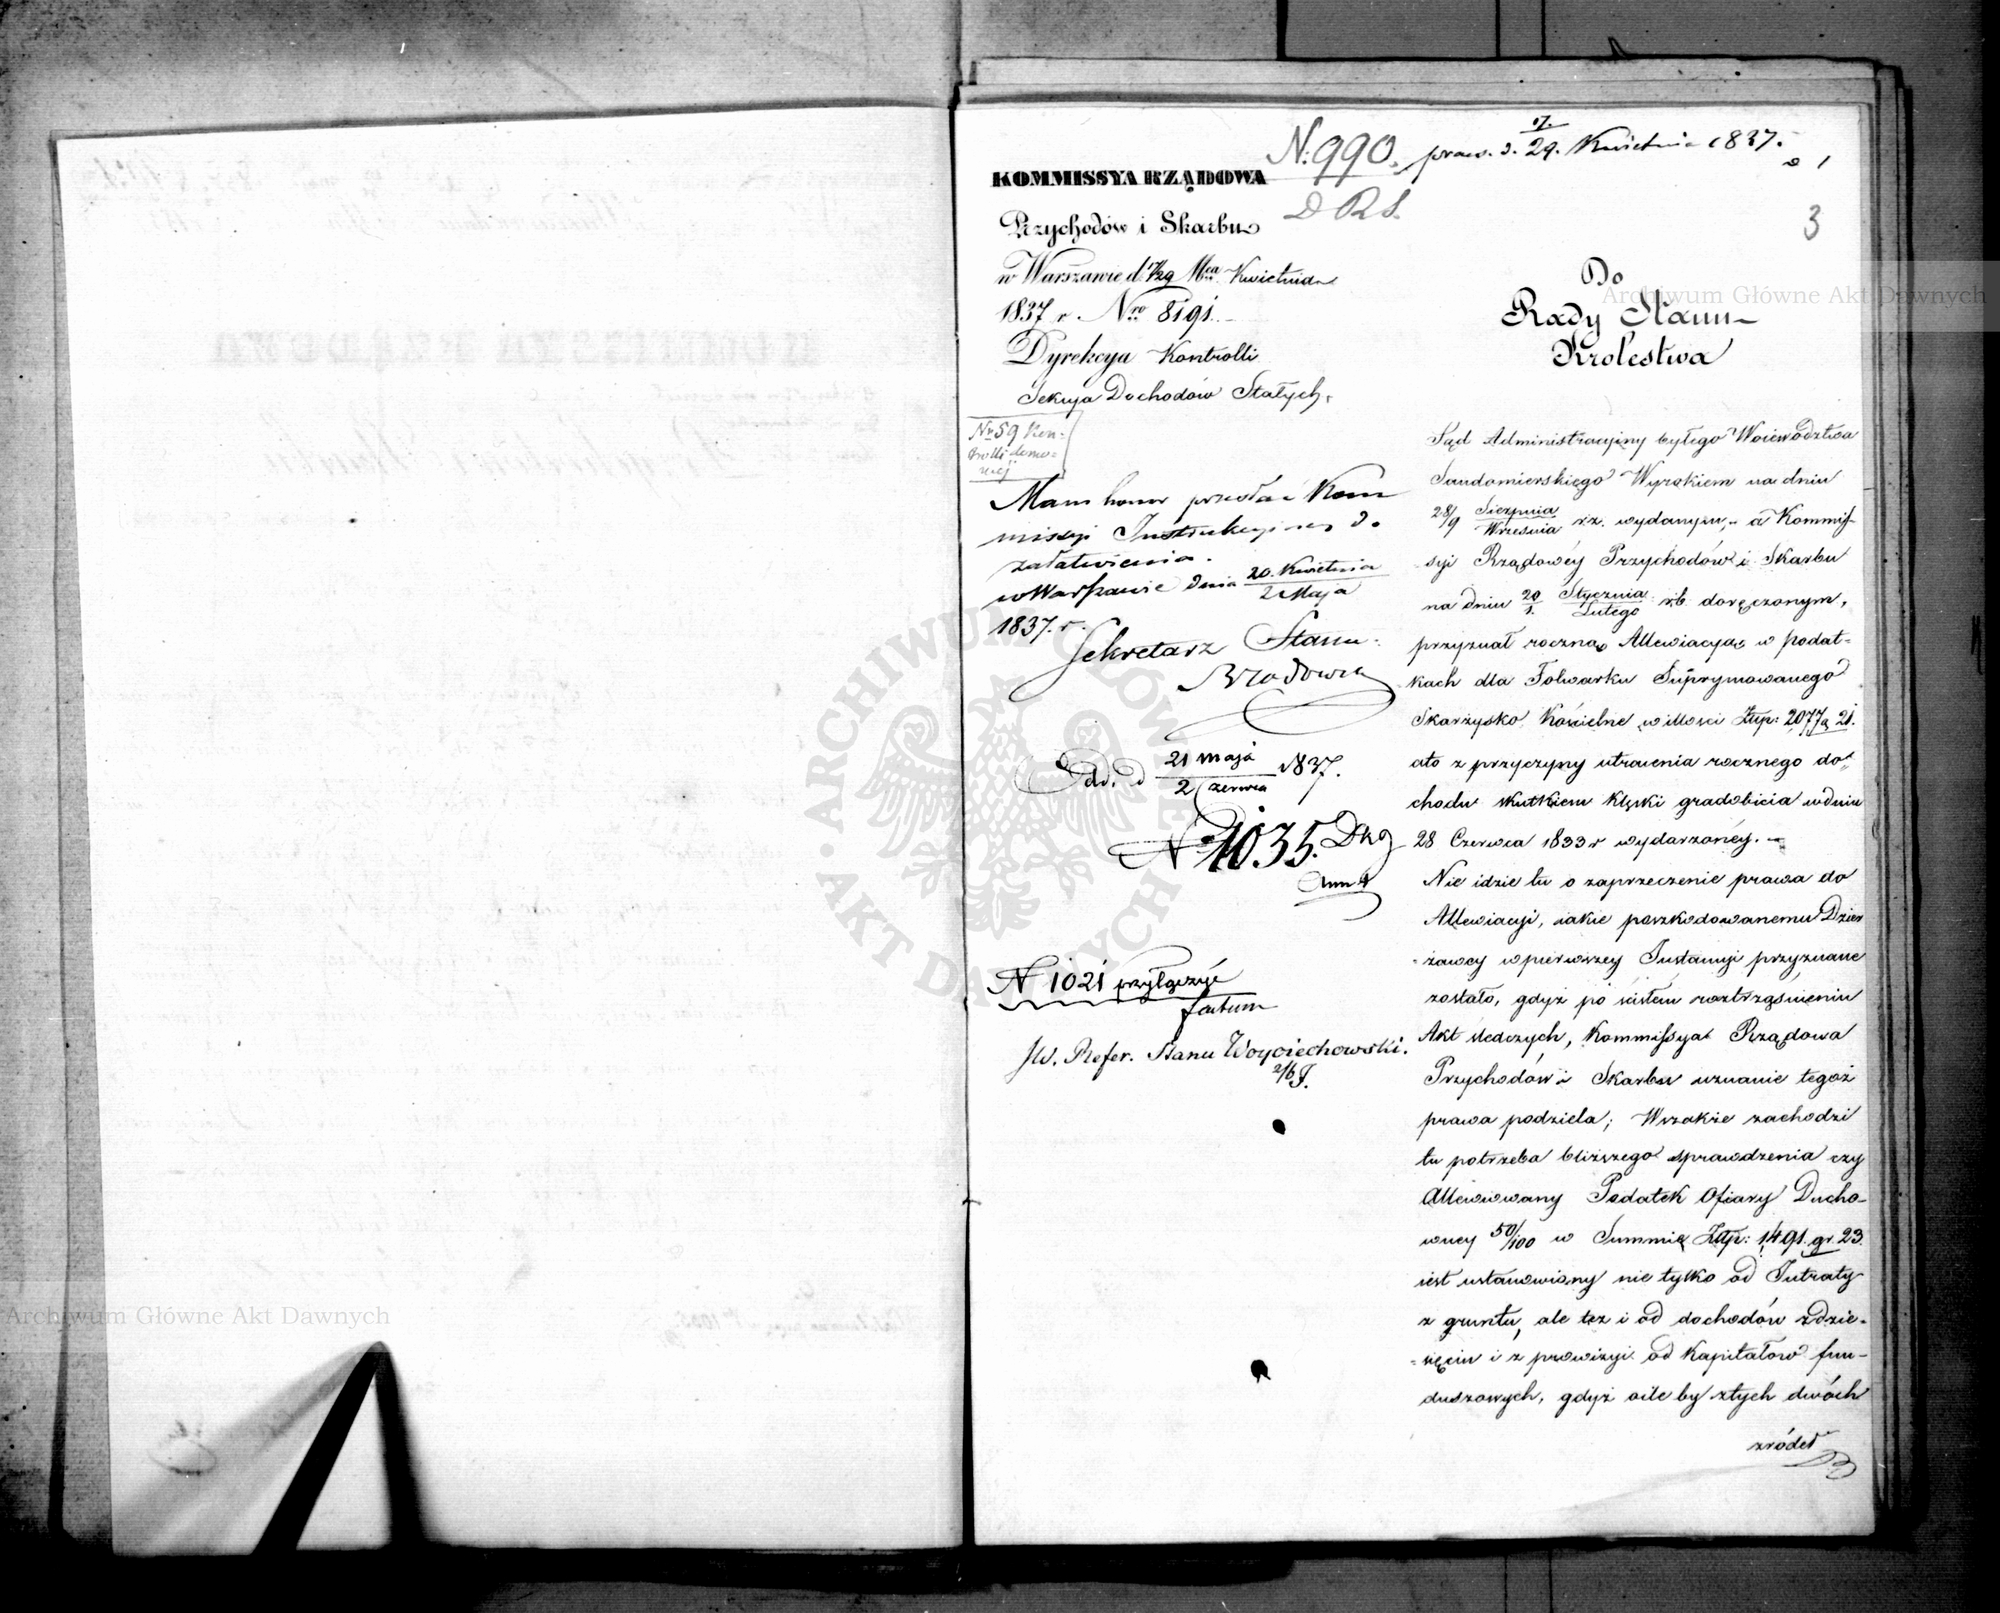 N: 990. praes. d. 17./29. Kwietnia 1837.
D R S.
3
KOMMISSYA RZĄDOWA
Przychodów i Skarbu
w Warszawie d. 17/29 Mca Kwietnia
1837 r. Nro 8191.
Dyrekcya Kontrolli
Sekcya Dochodów Stałych.
Nr 59 Kon-
trolli
Mam honor przesłać Kom
missyi Instrukcyjney do
załatwienia.
w Warszawie dnia 20. Kwietnia / 2 Maja
1837. r.
Sekretarz Stanu
Odd. d 21 maja / 2 Czerwca 1837.
N 1035.
N 1021 przyłączyć
factum
JW. Refer. Stanu Woyciechowski.
2/6
Do
Rady Stanu
Królestwa
Sąd Administracyjny byłego Woiewództwa
Sandomierskiego Wyrokiem na dniu
28/9 Sierpnia/Września r.z. wydanym, a Kommis-
syi Rządowéy Przychodów i Skarbu
na dniu 20/1. Stycznia/Lutego r.b. doręczonym,
przyznał roczną Allewiacyą w podat-
kach dla Folwarku Suprymowanego
Skarżysko Kościelne w illości Złp: 2077 g 21.
a to z przyczyny utracenia rocznego do-
chodu skutkiem klęski gradobicia w dniu
28 Czerwca 1833 r wydarzonéy.
Nie idzie tu o zaprzeczenie prawa do
Allewiacyi, iakie poszkodowanemu Dzier
-żawcy w pierwszey Instancyi przyznane
zostało, gdyż po ścisłém roztrząśnieniu
Akt śledczych, Kommissya Rządowa
Przychodów i Skarbu uznanie tegoż
prawa podziela; Wszakże zachodzi
tu potrzeba bliższego sprawdzenia czy
Allewiowany Podatek Ofiary Ducho-
wney 50/100 w Summie Złp: 1,491. gr. 23.
iest ustanowiony nie tylko od Intraty
z gruntu, ale też i od dochodów z Dzie-
-sięcin i z prowizyi od Kapitałów fun-
duszowych, gdyż o ile by z tych dwóch
źródeł
Archiwum Główne Akt Dawnych
Archiwum Główne Akt Dawnych
ARCHIWUM GŁÓWNE AKT DAWNYCH